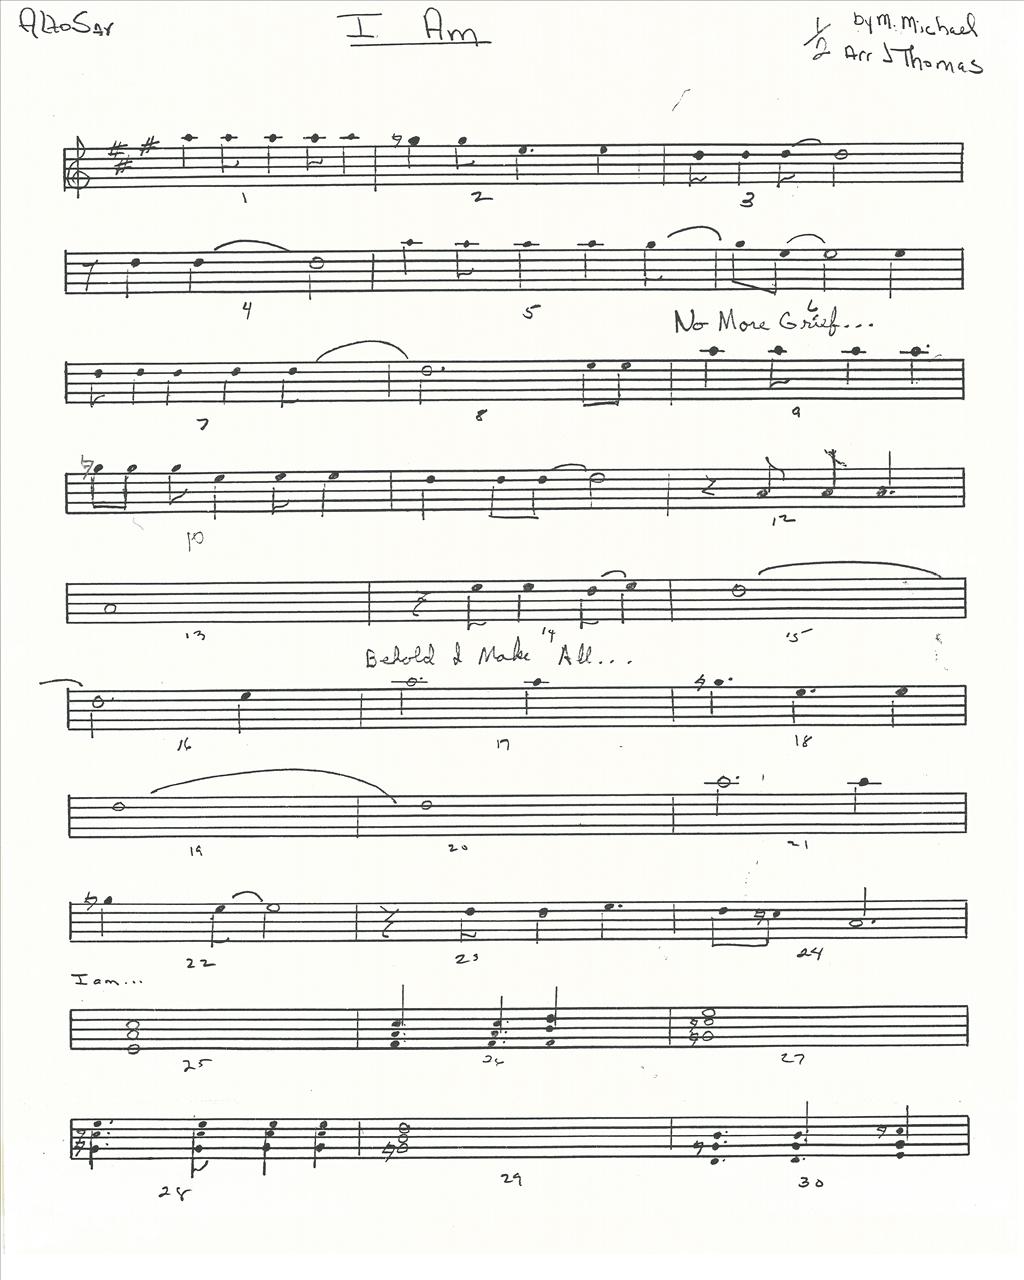 Alto Sax
I Am
1/2
by M. Michael
Arr J Thomas
1 2 3
4 5 6
No More Grief...
7 8 9
10 12
13 14 15
Behold I Make All...
16 17 18
19 20 21
22 23 24
I am...
25 26 27
28 29 30